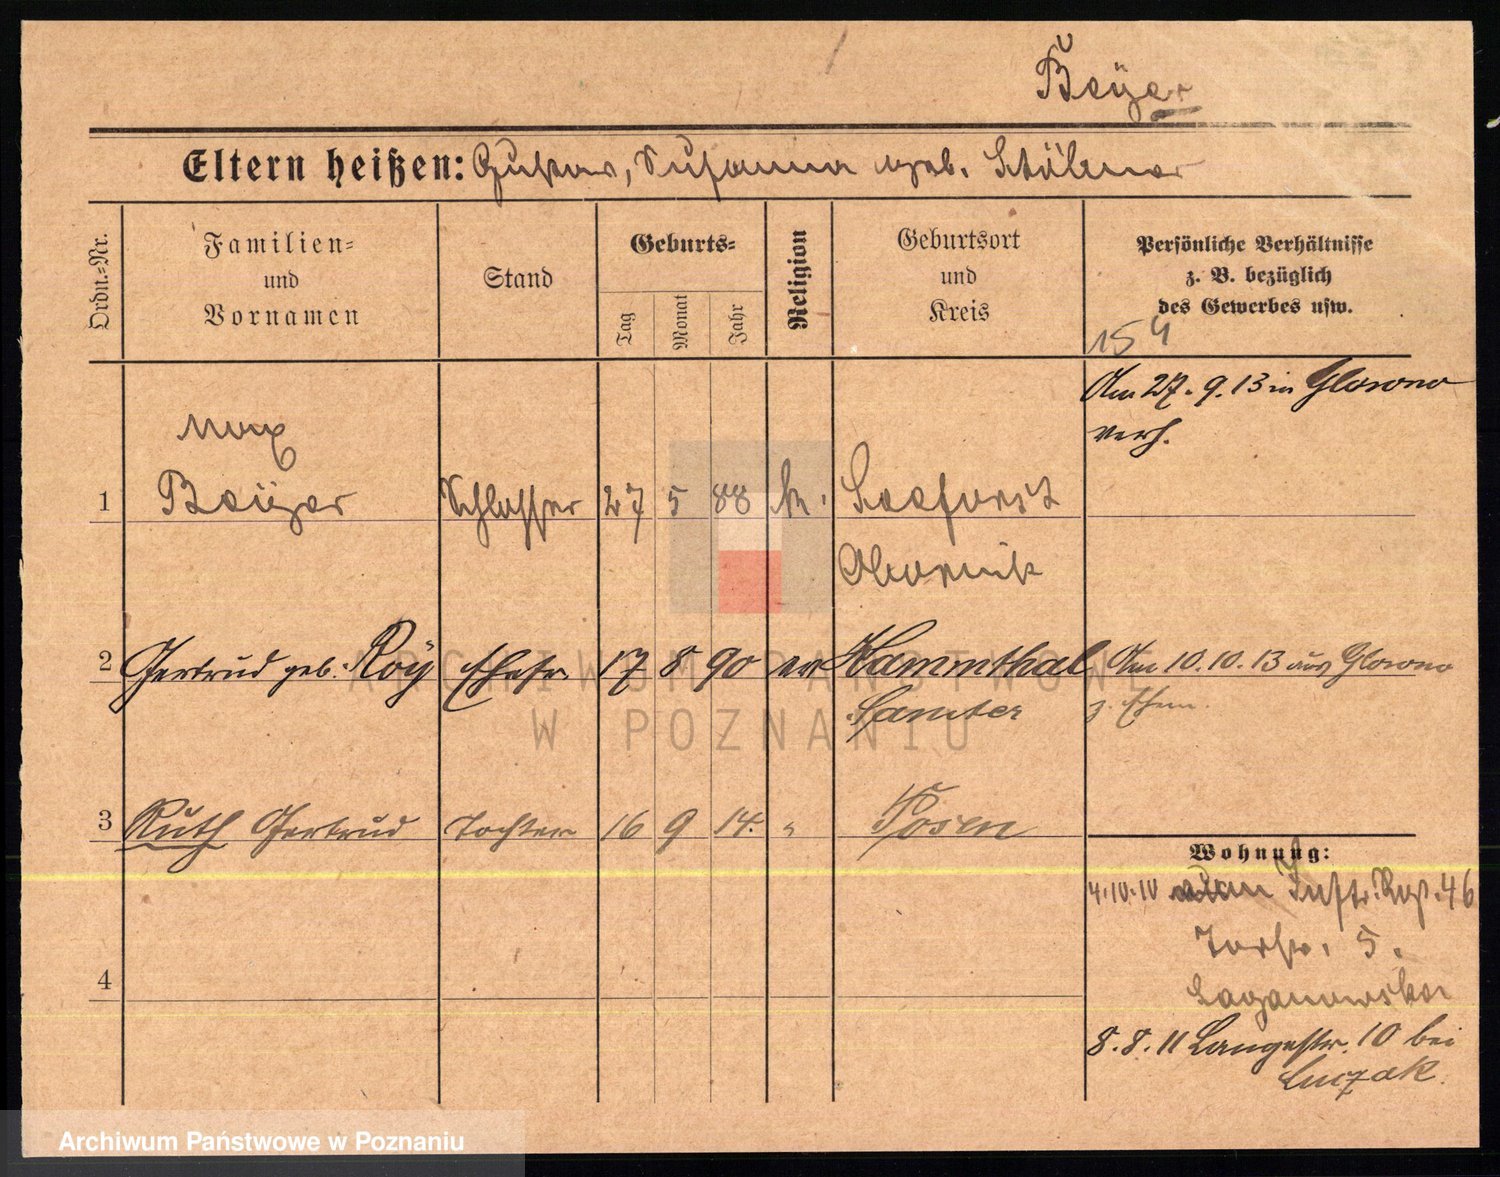 Beÿer
Eltern heißen: Gustav, Susanna geb. Stölner
Ordn.=Nr.
Familien=
und
Vornamen
Stand
Geburts=
Tag
Monat
Jahr
Religion
Geburtsort
und
Kreis
Persönliche Verhältnisse
z. B. bezüglich
des Gewerbes usw.
154
Am 27.9.13 in Glowno
verh.
Max
1 Beÿer Schlosser 27 5 88 k. Seeforst
Obornik
2 Gertrud geb. Roÿ Ehefr. 17 8 90 ev Hammthal Am 10.10.13 aus Glowno
Samter z. Ehem.
3 Ruth Gertrud Tochter 16 9 14. " Posen
Wohnung:
4.10.10 Inftr. Rgt. 46
Torstr. 5.
4
Laganowska
8.8.11 Langestr. 10 bei
Luczak.
ARCHIWUM PAŃSTWOWE
W POZNANIU
Archiwum Państwowe w Poznaniu